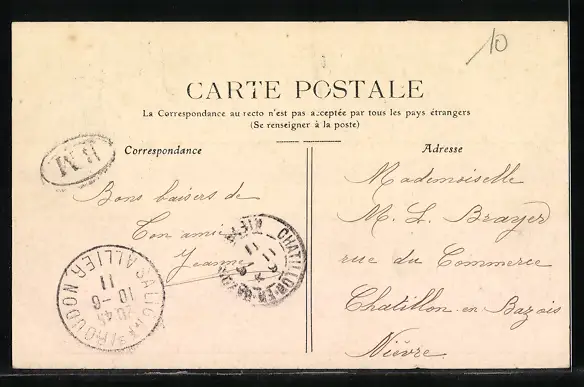 10
CARTE POSTALE
La Correspondance au recto n'est pas acceptée par tous les pays étrangers
(Se renseigner à la poste)
Correspondance
Adresse
BM
Bons baisers de
Ton amie
Jeanne
Mademoiselle
M. L. Brayer
rue du Commerce
Chatillon-en-Bazois
Nièvre
CHATILLON-EN
ALLIER
11
10-6
20 45